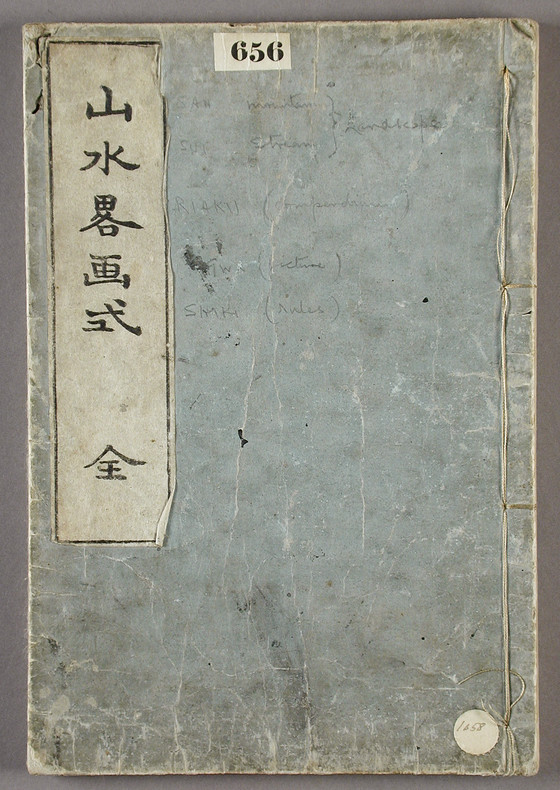 656
山水畧画式 全
SAN mountain } Landscape
SUI Stream
RIAKU (compendium)
(picture)
SHIKI (rules)
1458